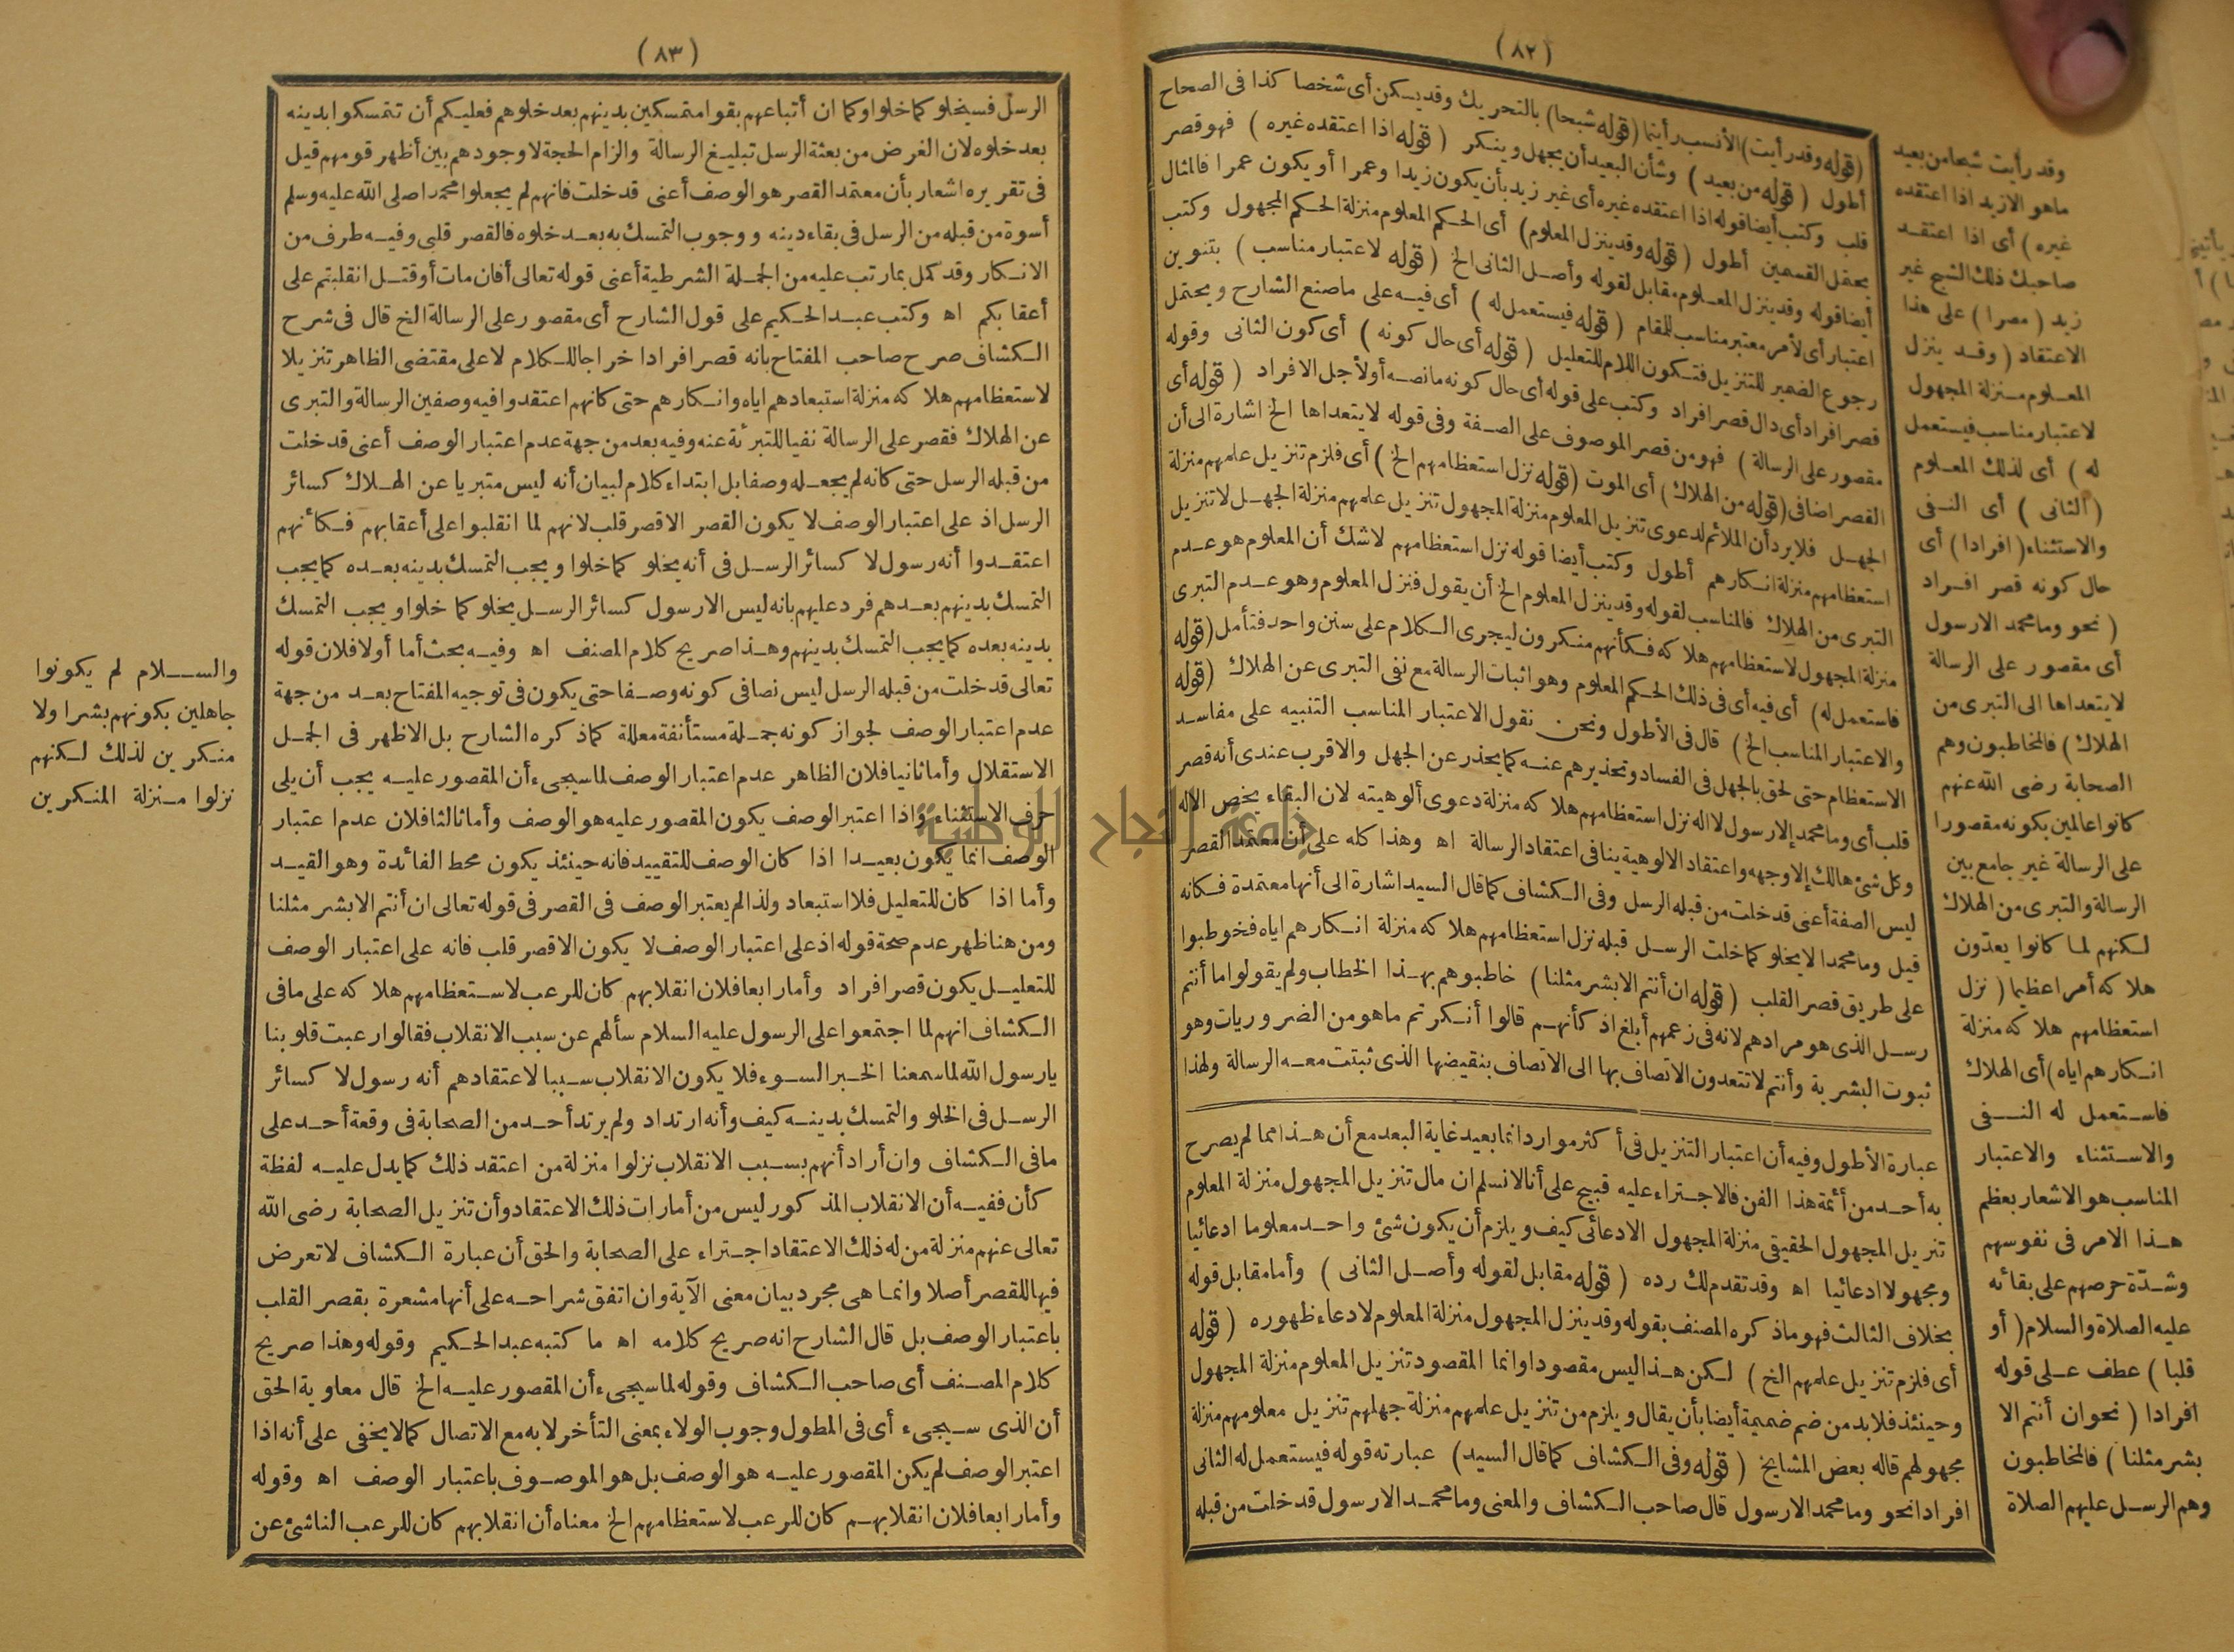 (٨٢)
وقد رأيت شبحا من بعيد
ماهو الا زيد اذا اعتقده
غيره) أى اذا اعتقد
صاحبك ذلك الشبح غير
زيد (مصرا) على هذا
الاعتقاد (وقد ينزل
المعلوم منزلة المجهول
لاعتبار مناسب فيستعمل
له) أى لذلك المعلوم
(الثانى) أى النفى
والاستثناء (افرادا) أى
حال كونه قصر افراد
(نحو وما محمد الا رسول
أى مقصور على الرسالة
لا يتعداها الى التبرى من
الهلاك) فالمخاطبون وهم
الصحابة رضى الله عنهم
كانوا عالمين بكونه مقصورا
على الرسالة غير جامع بين
الرسالة والتبرى من الهلاك
لكنهم لما كانوا يعدّون
هلاكه أمرا عظيما (نزل
استعظامهم هلاكه منزلة
انكارهم اياه) أى الهلاك
فاستعمل له النفى
والاستثناء والاعتبار
المناسب هو الاشعار بعظم
هذا الامر فى نفوسهم
وشدّة حرصهم على بقائه
عليه الصلاة والسلام (أو
قلبا) عطف على قوله
افرادا (نحو ان أنتم الا
بشر مثلنا) فالمخاطبون
وهم الرسل عليهم الصلاة
(قوله وقد رأيت) الأنسب رأيتما (قوله شبحا) بالتحريك وقد يسكن أى شخصا كذا فى الصحاح
أطول (قوله من بعيد) وشأن البعيد أن يجهل وينكر (قوله اذا اعتقده غيره) فهو قصر
قلب وكتب أيضا قوله اذا اعتقده غيره أى غير زيد بأن يكون زيدا وعمرا أو يكون عمرا فالمثال
يحتمل القسمين أطول (قوله وقد ينزل المعلوم) أى الحكم المعلوم منزلة الحكم المجهول وكتب
أيضا قوله وقد ينزل المعلوم مقابل لقوله وأصل الثانى الخ (قوله لاعتبار مناسب) بتنوين
اعتبار أى لأمر معتبر مناسب للمقام (قوله فيستعمل له) أى فيه على ماصنع الشارح ويحتمل
رجوع الضمير للتنزيل فتكون اللام للتعليل (قوله أى حال كونه) أى كون الثانى وقوله
قصر افراد أى دال قصر افراد وكتب على قوله أى حال كونه مانصه أو لأجل الافراد (قوله أى
مقصور على الرسالة) فهو من قصر الموصوف على الصفة وفى قوله لا يتعداها الخ اشارة الى أن
القصر اضافى (قوله من الهلاك) أى الموت (قوله نزل استعظامهم الخ) أى فلزم تنزيل علمهم منزلة
الجهل فلا يرد أن الملائم لدعوى تنزيل المعلوم منزلة المجهول تنزيل علمهم منزلة الجهل لا تنزيل
استعظامهم منزلة انكارهم أطول وكتب أيضا قوله نزل استعظامهم لاشك أن المعلوم هو عدم
التبرى من الهلاك فالمناسب لقوله وقد ينزل المعلوم الخ أن يقول فنزل المعلوم وهو عدم التبرى
منزلة المجهول لاستعظامهم هلاكه فكأنهم منكرون ليجرى الكلام على سنن واحد فتأمل (قوله
فاستعمل له) أى فيه أى فى ذلك الحكم المعلوم وهو اثبات الرسالة مع نفى التبرى عن الهلاك (قوله
والاعتبار المناسب الخ) قال فى الأطول ونحن نقول الاعتبار المناسب التنبيه على مفاسد
الاستعظام حتى لحق بالجهل فى الفساد وتحذيرهم عنه كما يحذر عن الجهل والاقرب عندى أنه قصر
قلب أى وما محمد إلا رسول لا اله نزل استعظامهم هلاكه منزلة دعوى ألوهيته لان البقاء يخص الاله
وكل شئ هالك إلا وجهه واعتقاد الالوهية ينافى اعتقاد الرسالة اه وهذا كله على أن معتمد القصر
ليس الصفة أعنى قد خلت من قبله الرسل وفى الكشاف كما قال السيد اشارة الى أنها معتمدة فكانه
قيل وما محمد الا يخلو كما خلت الرسل قبله نزل استعظامهم هلاكه منزلة انكارهم اياه فخوطبوا
على طريق قصر القلب (قوله ان أنتم الا بشر مثلنا) خاطبوهم بهذا الخطاب ولم يقولوا ما أنتم
رسل الذى هو مرادهم لانه فى زعمهم أبلغ اذ كأنهم قالوا أنكرتم ماهو من الضروريات وهو
ثبوت البشرية وأنتم لا تتعدون الاتصاف بها الى الاتصاف بنقيضها الذى ثبتت معه الرسالة ولهذا
عبارة الأطول وفيه أن اعتبار التنزيل فى أكثر موارد انما بعيد غاية البعد مع أن هذا مما لم يصرح
به أحد من أئمة هذا الفن فالاجتراء عليه قبيح على أنا لا نسلم ان مال تنزيل المجهول منزلة المعلوم
تنزيل المجهول الحقيقى منزلة المجهول الادعائى كيف ويلزم أن يكون شئ واحد معلوما ادعائيا
ومجهولا ادعائيا اه وقد تقدم لك رده (قوله مقابل لقوله وأصل الثانى) وأما مقابل قوله
بخلاف الثالث فهو ماذكره المصنف بقوله وقد ينزل المجهول منزلة المعلوم لادعاء ظهوره (قوله
أى فلزم تنزيل علمهم الخ) لكن هذا ليس مقصودا وانما المقصود تنزيل المعلوم منزلة المجهول
وحينئذ فلا بد من ضم ضميمة أيضا بأن يقال ويلزم من تنزيل علمهم منزلة جهلهم تنزيل معلومهم منزلة
مجهولهم قاله بعض المشايخ (قوله وفى الكشاف كما قال السيد) عبارته قوله فيستعمل له الثانى
افرادا نحو وما محمد الا رسول قال صاحب الكشاف والمعنى وما محمد الا رسول قد خلت من قبله
(٨٣)
الرسل فسيخلو كما خلوا وكما ان أتباعهم بقوا متمسكين بدينهم بعد خلوهم فعليكم أن تتمسكوا بدينه
بعد خلوه لان الغرض من بعثة الرسل تبليغ الرسالة والزام الحجة لا وجودهم بين أظهر قومهم قيل
فى تقريره اشعار بأن معتمد القصر هو الوصف أعنى قد خلت فانهم لم يجعلوا محمدا صلى الله عليه وسلم
أسوة من قبله من الرسل فى بقاء دينه ووجوب التمسك به بعد خلوه فالقصر قلبى وفيه طرف من
الانكار وقد كمل بما رتب عليه من الجملة الشرطية أعنى قوله تعالى أفان مات أو قتل انقلبتم على
أعقابكم اه وكتب عبد الحكيم على قول الشارح أى مقصور على الرسالة الخ قال فى شرح
الكشاف صرح صاحب المفتاح بانه قصر افراد اخراجا للكلام لا على مقتضى الظاهر تنزيلا
لاستعظامهم هلاكه منزلة استبعادهم اياه وانكارهم حتى كانهم اعتقدوا فيه وصفين الرسالة والتبرى
عن الهلاك فقصر على الرسالة نفيا للتبرئة عنه وفيه بعد من جهة عدم اعتبار الوصف أعنى قد خلت
من قبله الرسل حتى كانه لم يجعله وصفا بل ابتداء كلام لبيان أنه ليس متبريا عن الهلاك كسائر
الرسل اذ على اعتبار الوصف لا يكون القصر الا قصر قلب لانهم لما انقلبوا على أعقابهم فكأنهم
اعتقدوا أنه رسول لا كسائر الرسل فى أنه يخلو كما خلوا ويجب التمسك بدينه بعده كما يجب
التمسك بدينهم بعدهم فرد عليهم بانه ليس الا رسول كسائر الرسل يخلو كما خلوا ويجب التمسك
بدينه بعده كما يجب التمسك بدينهم وهذا صريح كلام المصنف اه وفيه بحث أما أولا فلان قوله
تعالى قد خلت من قبله الرسل ليس نصا فى كونه وصفا حتى يكون فى توجيه المفتاح بعد من جهة
عدم اعتبار الوصف لجواز كونه جملة مستأنفة معللة كما ذكره الشارح بل الاظهر فى الجمل
الاستقلال وأما ثانيا فلان الظاهر عدم اعتبار الوصف لما سيجىء أن المقصور عليه يجب أن يلى
حرف الاستثناء واذا اعتبر الوصف يكون المقصور عليه هو الوصف وأما ثالثا فلان عدم اعتبار
الوصف انما يكون بعيدا اذا كان الوصف للتقييد فانه حينئذ يكون محط الفائدة وهو القيد
وأما اذا كان للتعليل فلا استبعاد ولذا لم يعتبر الوصف فى القصر فى قوله تعالى ان أنتم الا بشر مثلنا
ومن هنا ظهر عدم صحة قوله اذ على اعتبار الوصف لا يكون الا قصر قلب فانه على اعتبار الوصف
للتعليل يكون قصر افراد وأما رابعا فلان انقلابهم كان للرعب لاستعظامهم هلاكه على مافى
الكشاف انهم لما اجتمعوا على الرسول عليه السلام سألهم عن سبب الانقلاب فقالوا رعبت قلوبنا
يا رسول الله لما سمعنا الخبر السوء فلا يكون الانقلاب سببا لاعتقادهم أنه رسول لا كسائر
الرسل فى الخلو والتمسك بدينه كيف وأنه ارتداد ولم يرتد أحد من الصحابة فى وقعة أحد على
مافى الكشاف وان أراد أنهم بسبب الانقلاب نزلوا منزلة من اعتقد ذلك كما يدل عليه لفظة
كأن ففيه أن الانقلاب المذكور ليس من أمارات ذلك الاعتقاد وأن تنزيل الصحابة رضى الله
تعالى عنهم منزلة من له ذلك الاعتقاد اجتراء على الصحابة والحق أن عبارة الكشاف لا تعرض
فيها للقصر أصلا وانما هى مجرد بيان معنى الآية وان اتفق شراحه على أنها مشعرة بقصر القلب
باعتبار الوصف بل قال الشارح انه صريح كلامه اه ما كتبه عبد الحكيم وقوله وهذا صريح
كلام المصنف أى صاحب الكشاف وقوله لما سيجىء أن المقصور عليه الخ قال معاوية الحق
أن الذى سيجىء أى فى المطول وجوب الولاء بمعنى التأخر لا به مع الاتصال كما لا يخفى على أنه اذا
اعتبر الوصف لم يكن المقصور عليه هو الوصف بل هو الموصوف باعتبار الوصف اه وقوله
وأما رابعا فلان انقلابهم كان للرعب لاستعظامهم الخ معناه أن انقلابهم كان للرعب الناشئ عن
والسلام لم يكونوا
جاهلين بكونهم بشرا ولا
منكرين لذلك لكنهم
نزلوا منزلة المنكرين
جامعة النجاح الوطنية